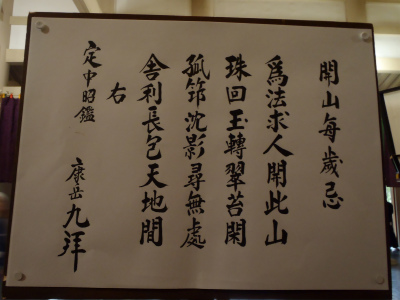 開山毎歳忌
為法求人開此山
珠回玉轉翠苔閑
孤筇沈影尋無處
舎利長包天地間
右
定中昭鑑
康岳九拜